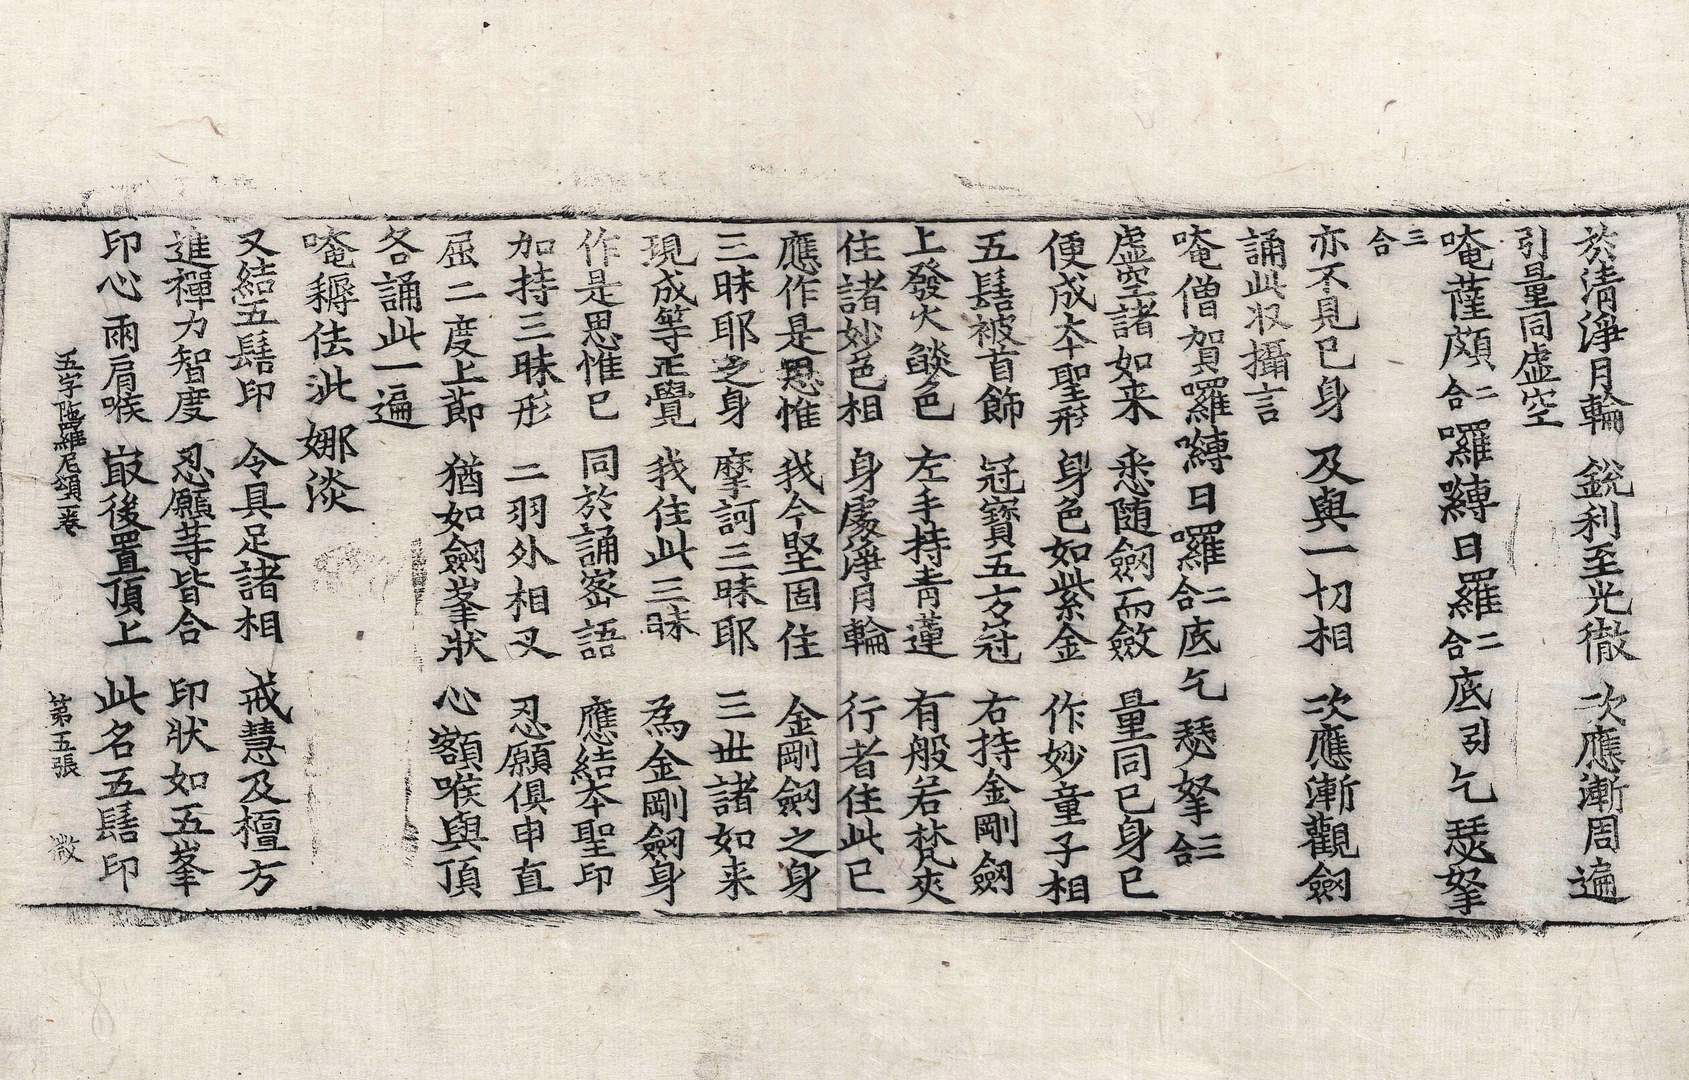 於清淨月輪 銳利至光徹 次應漸周遍
引量同虛空
唵薩頗二合囉嚩日羅二合底引乞瑟拏
三合
亦不見已身 及與一切相 次應漸觀劒
誦此収攝言
唵僧賀囉嚩日囉二合底乞瑟拏三合
虛空諸如来 悉随劒而斂 量同已身已
便成夲聖形 身色如紫金 作妙童子相
五髻被首飾 冠寶五方冠 右持金剛劒
上發火㷔色 左手持青蓮 有般若梵夾
住諸妙色相 身處淨月輪 行者住此已
應作是思惟 我今堅固住 金剛劒之身
三昧耶之身 摩訶三昧耶 三世諸如来
現成等正覺 我住此三昧 為金剛劒身
作是思惟已 同於誦密語 應結夲聖印
加持三昧形 二羽外相叉 忍願俱申直
屈二度上節 猶如劒峯狀 心額喉與頂
各誦此一遍
唵耨佉泚娜淡
又結五髻印 令具足諸相 戒慧及檀方
進禪力智度 忍願等皆合 印狀如五峯
印心兩肩喉 㝡後置頂上 此名五髻印
五字陁羅尼頌一卷 第五張